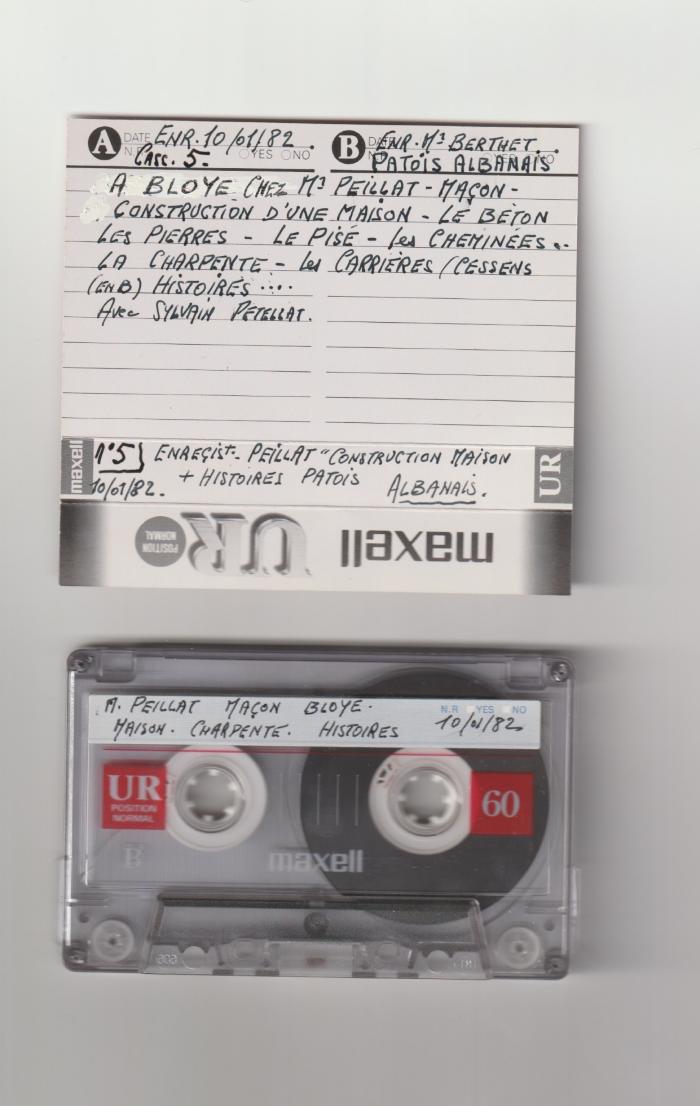 A DATE ENR. 10/01/82. B ENR. Mr BERTHET.
N.R Casc. 5. YES NO PATOIS ALBANAIS NO
A BLOYE CHEZ Mr PEILLAT - MAÇON -
CONSTRUCTION D'UNE MAISON - LE BÉTON
LES PIERRES - LE PISÉ - Les CHEMINÉES..
LA CHARPENTE - Les CARRIÈRES (CESSENS
(EN B) HISTOIRES ....
Avec SYLVAIN PETELLAT.
maxell N°5 ENREGIST. PEILLAT "CONSTRUCTION MAISON UR
10/01/82. + HISTOIRES PATOIS ALBANAIS.
maxell UR POSITION NORMAL
M. PEILLAT MAÇON BLOYE. N.R YES NO
MAISON. CHARPENTE. HISTOIRES 10/01/82
UR 60
POSITION
NORMAL
B maxell